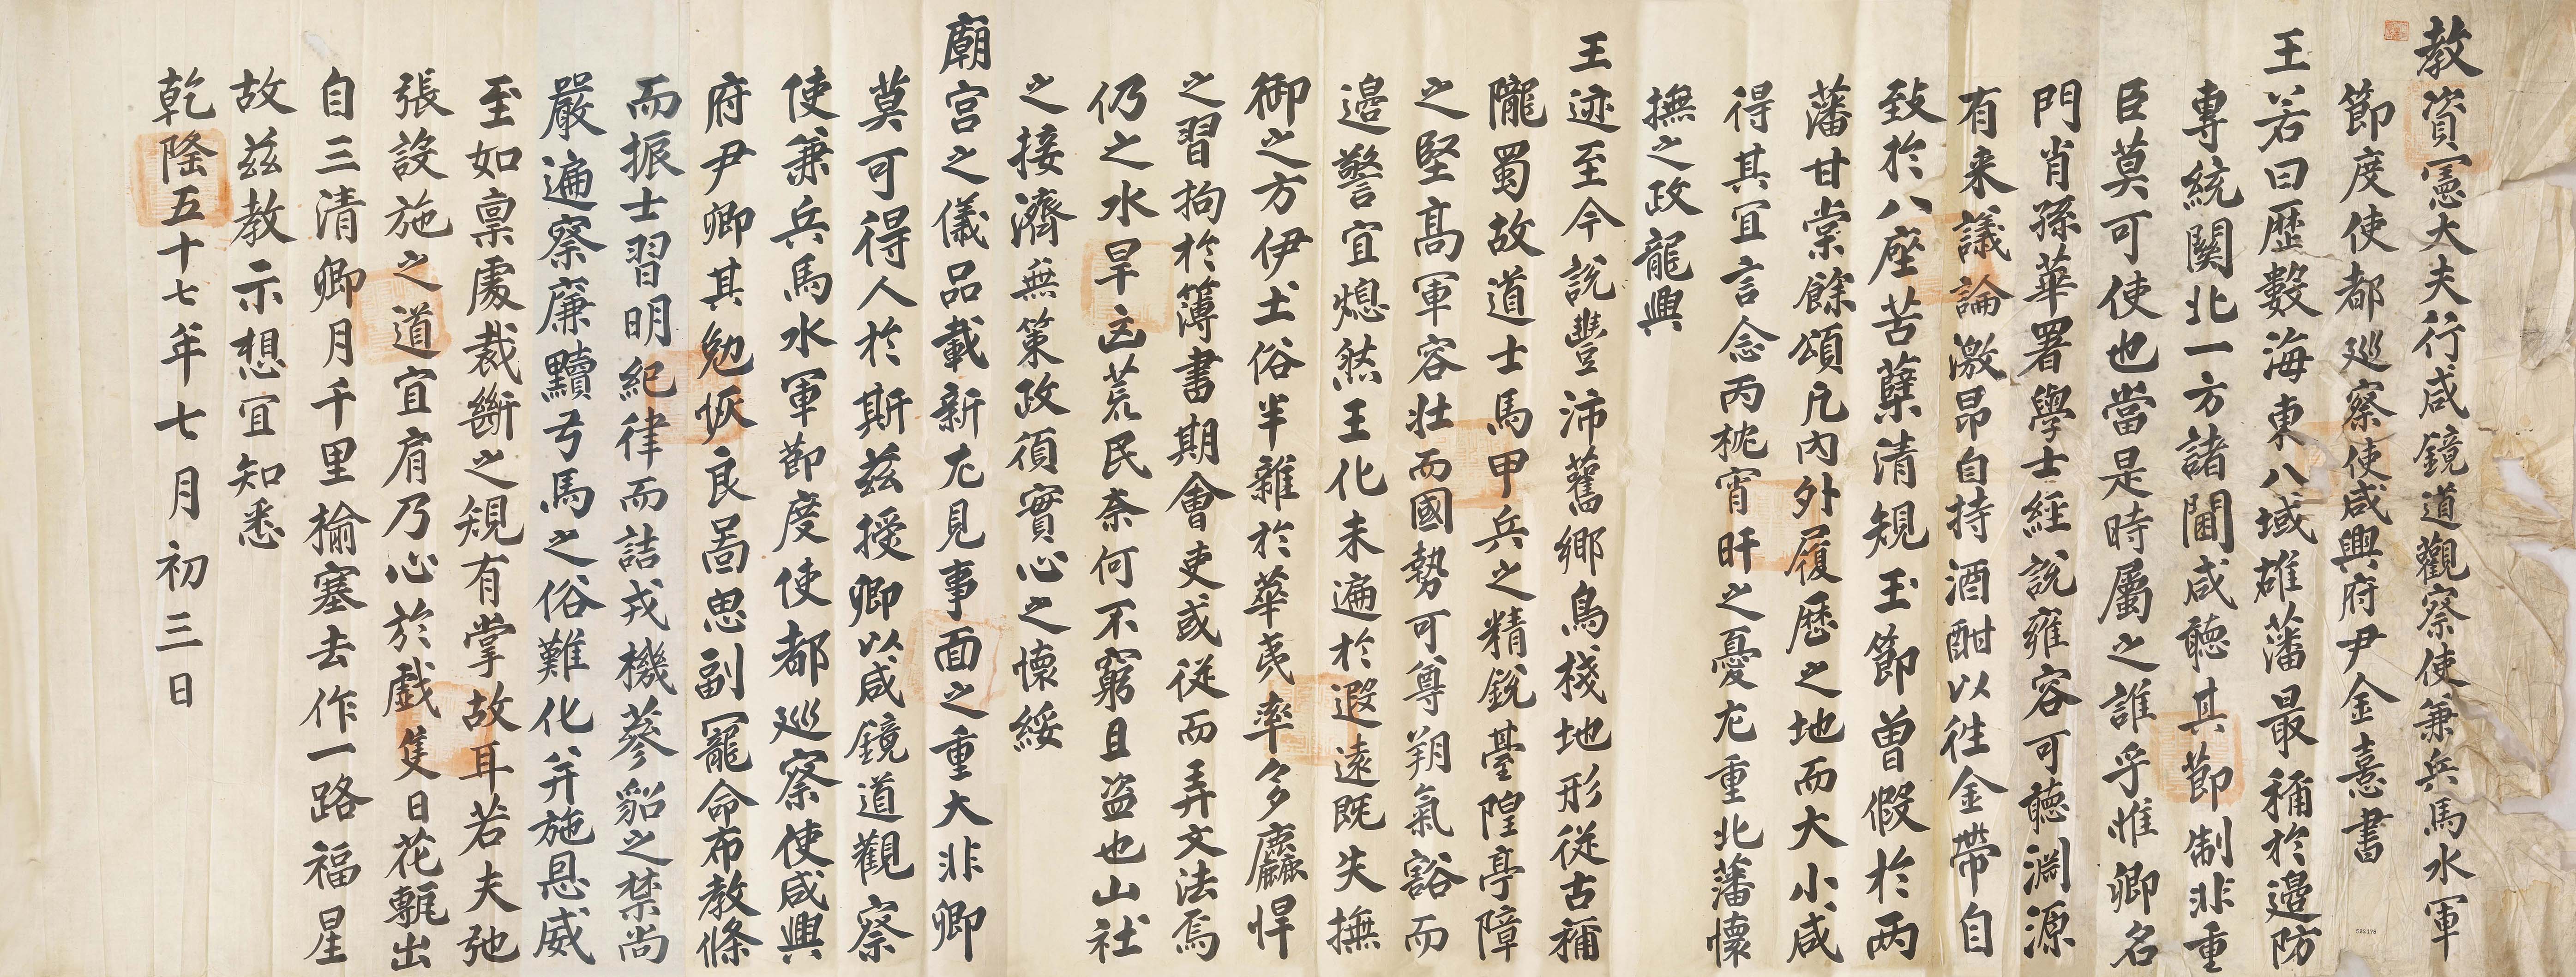 教資憲大夫行咸鏡道觀察使兼兵馬水軍
節度使都巡察使咸興府尹金憙書
王若曰歷數海東八域雄藩最稱於邊防
專統關北一方諸閫咸聽其節制非重
臣莫可使也當是時屬之誰乎惟卿名
門肖孫華署學士經說雍容可聽淵源
有来議論激昂自持酒酣以往金帶自
致於八座苦蘖清規玉節曾假於兩
藩甘棠餘頌凡內外履歷之地而大小咸
得其宜言念丙枕宵旰之憂尤重北藩懷
撫之政龍興
王迹至今說豐沛舊鄉鳥棧地形従古稱
隴蜀故道士馬甲兵之精銳臺隍亭障
之堅髙軍容壯而國勢可尊朔氣豁而
邊警宜熄然王化未遍於遐遠既失撫
御之方伊土俗半雜於華夷率多麤悍
之習拘於簿書期會吏或従而弄文法焉
仍之水旱凶荒民奈何不窮且盜也山社
之接濟無策政須實心之懷綏
廟宮之儀品載新尤見事面之重大非卿
莫可得人於斯茲授卿以咸鏡道觀察
使兼兵馬水軍節度使都巡察使咸興
府尹卿其勉恢良啚思副寵命布教條
而振士習明紀律而詰戎機蔘貂之禁尚
嚴遍察廉黷弓馬之俗難化并施恩威
至如稟處裁斷之規有掌故耳若夫弛
張設施之道宜肩乃心於戱隻日花甎出
自三清卿月千里榆塞去作一路福星
故玆教示想宜知悉
乾隆五十七年七月初三日